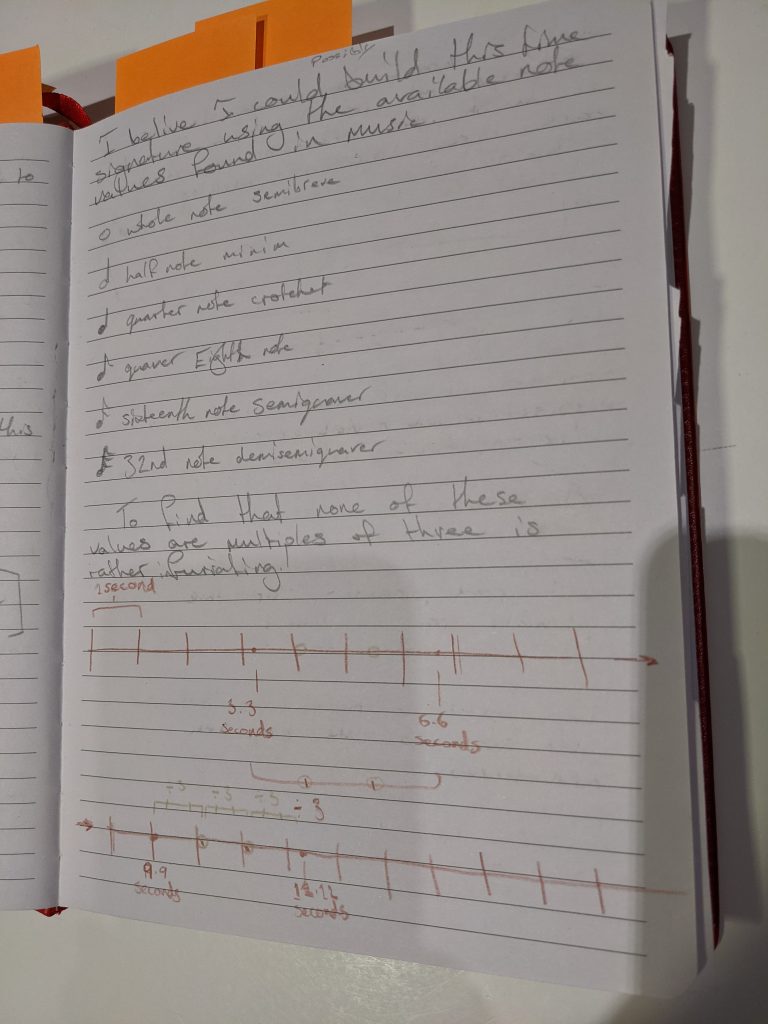 to
this
possibly
I belive I could build this time
signature using the available note
values found in music
whole note semibreve
half note minim
quarter note crotchet
quaver Eighth note
sixteenth note semiquaver
32nd note demisemiquaver
To find that none of these
values are multiples of three is
rather
1 second
3.3
seconds
6.6
seconds
÷3 ÷3 ÷3 ÷ 3
9.9
seconds
seconds